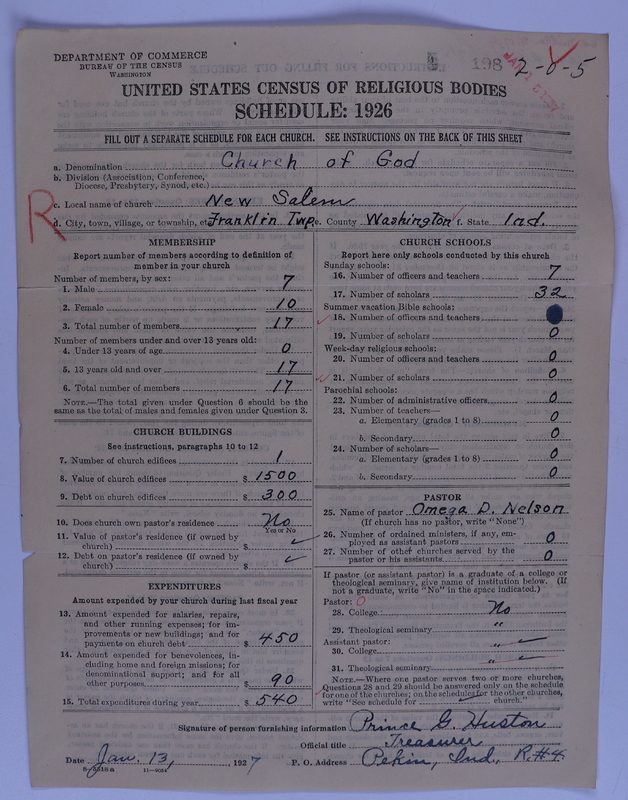 DEPARTMENT OF COMMERCE
BUREAU OF THE CENSUS
WASHINGTON
198 2-0-5
UNITED STATES CENSUS OF RELIGIOUS BODIES
SCHEDULE: 1926
FILL OUT A SEPARATE SCHEDULE FOR EACH CHURCH. SEE INSTRUCTIONS ON THE BACK OF THIS SHEET
a. Denomination Church of God
b. Division (Association, Conference,
Diocese, Presbytery, Synod, etc.)
R
c. Local name of church New Salem
d. City, town, village, or township, etc. Franklin Twp. e. County Washington f. State Ind.
MEMBERSHIP
Report number of members according to definition of
member in your church
Number of members, by sex:
1. Male 7
2. Female 10
3. Total number of members 17
Number of members under and over 13 years old:
4. Under 13 years of age 0
5. 13 years old and over 17
6. Total number of members 17
NOTE.—The total given under Question 6 should be the
same as the total of males and females given under Question 3.
CHURCH BUILDINGS
See instructions, paragraphs 10 to 12
7. Number of church edifices 1
8. Value of church edifices $ 1500
9. Debt on church edifices $ 300
10. Does church own pastor's residence No
Yes or No
11. Value of pastor's residence (if owned by
church) $
12. Debt on pastor's residence (if owned by
church) $
EXPENDITURES
Amount expended by your church during last fiscal year
13. Amount expended for salaries, repairs,
and other running expenses; for im-
provements or new buildings; and for
payments on church debt $ 450
14. Amount expended for benevolences, in-
cluding home and foreign missions; for
denominational support; and for all
other purposes $ 90
15. Total expenditures during year $ 540
CHURCH SCHOOLS
Report here only schools conducted by this church
Sunday schools:
16. Number of officers and teachers 7
17. Number of scholars 32
Summer vacation Bible schools:
18. Number of officers and teachers
19. Number of scholars 0
Week-day religious schools:
20. Number of officers and teachers 0
21. Number of scholars 0
Parochial schools:
22. Number of administrative officers 0
23. Number of teachers—
a. Elementary (grades 1 to 8) 0
b. Secondary 0
24. Number of scholars—
a. Elementary (grades 1 to 8) 0
b. Secondary 0
PASTOR
25. Name of pastor Omega D. Nelson
(If church has no pastor, write "None")
26. Number of ordained ministers, if any, em-
ployed as assistant pastors 0
27. Number of other churches served by the
pastor or his assistants 0
If pastor (or assistant pastor) is a graduate of a college or
theological seminary, give name of institution below. (If
not a graduate, write "No" in the space indicated.)
Pastor: 0
28. College No
29. Theological seminary "
Assistant pastor:
30. College "
31. Theological seminary "
NOTE.—Where one pastor serves two or more churches,
Questions 28 and 29 should be answered only on the schedule
for one of the churches; on the schedules for the other churches,
write "See schedule for church."
Signature of person furnishing information Prince G. Huston
Official title Treasurer
Date Jan. 13, 1927 P. O. Address Pekin, Ind., R.#4.